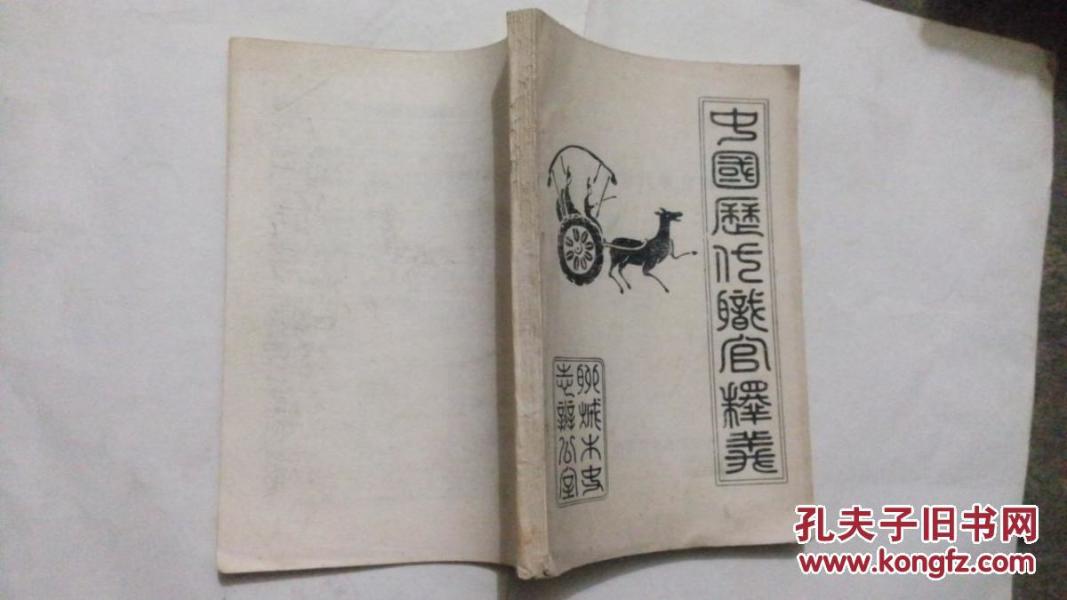 中國歷代職官釋義
聊城市史
志辦公室
孔夫子旧书网
www.kongfz.com